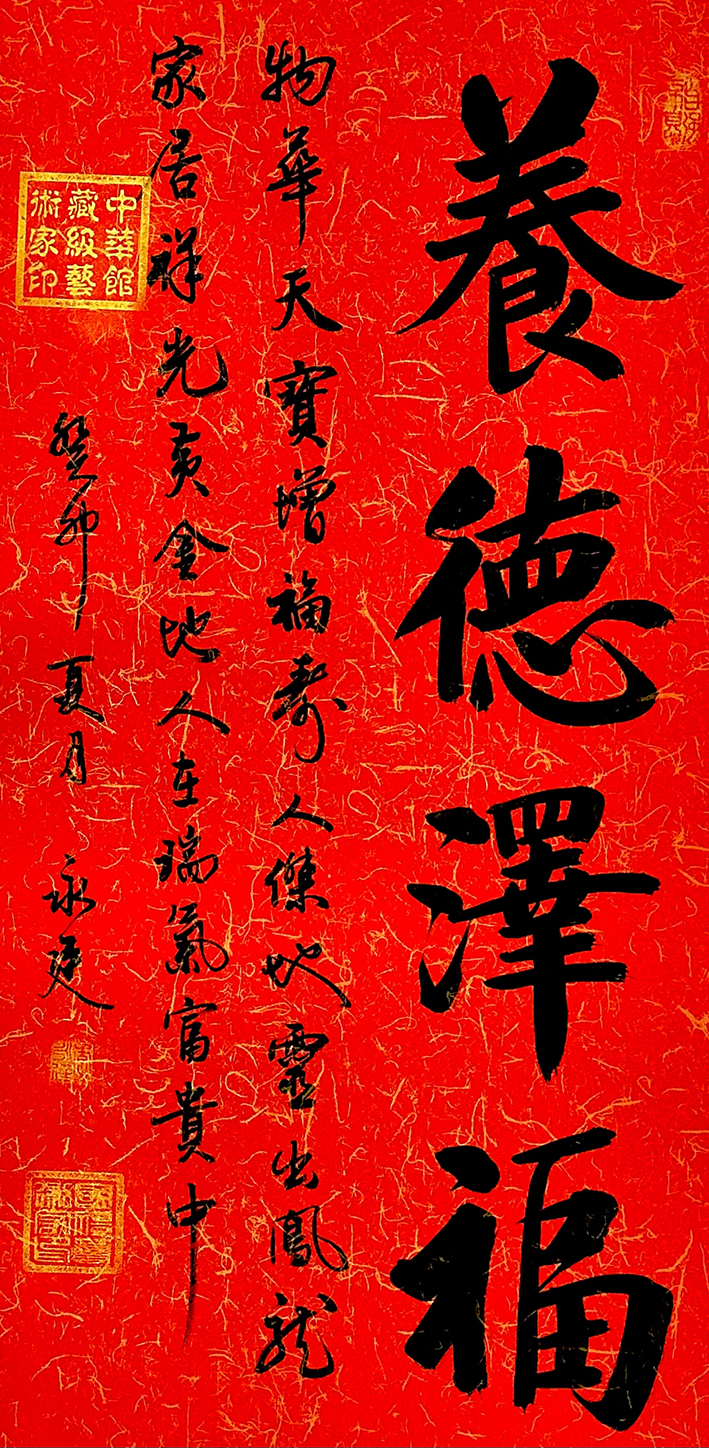 養德澤福
物華天寶增福壽人傑地靈出鳳龍
家居祥光黃金地人在瑞氣富貴中
癸卯夏月 永廷
中華館
藏級藝
術家印